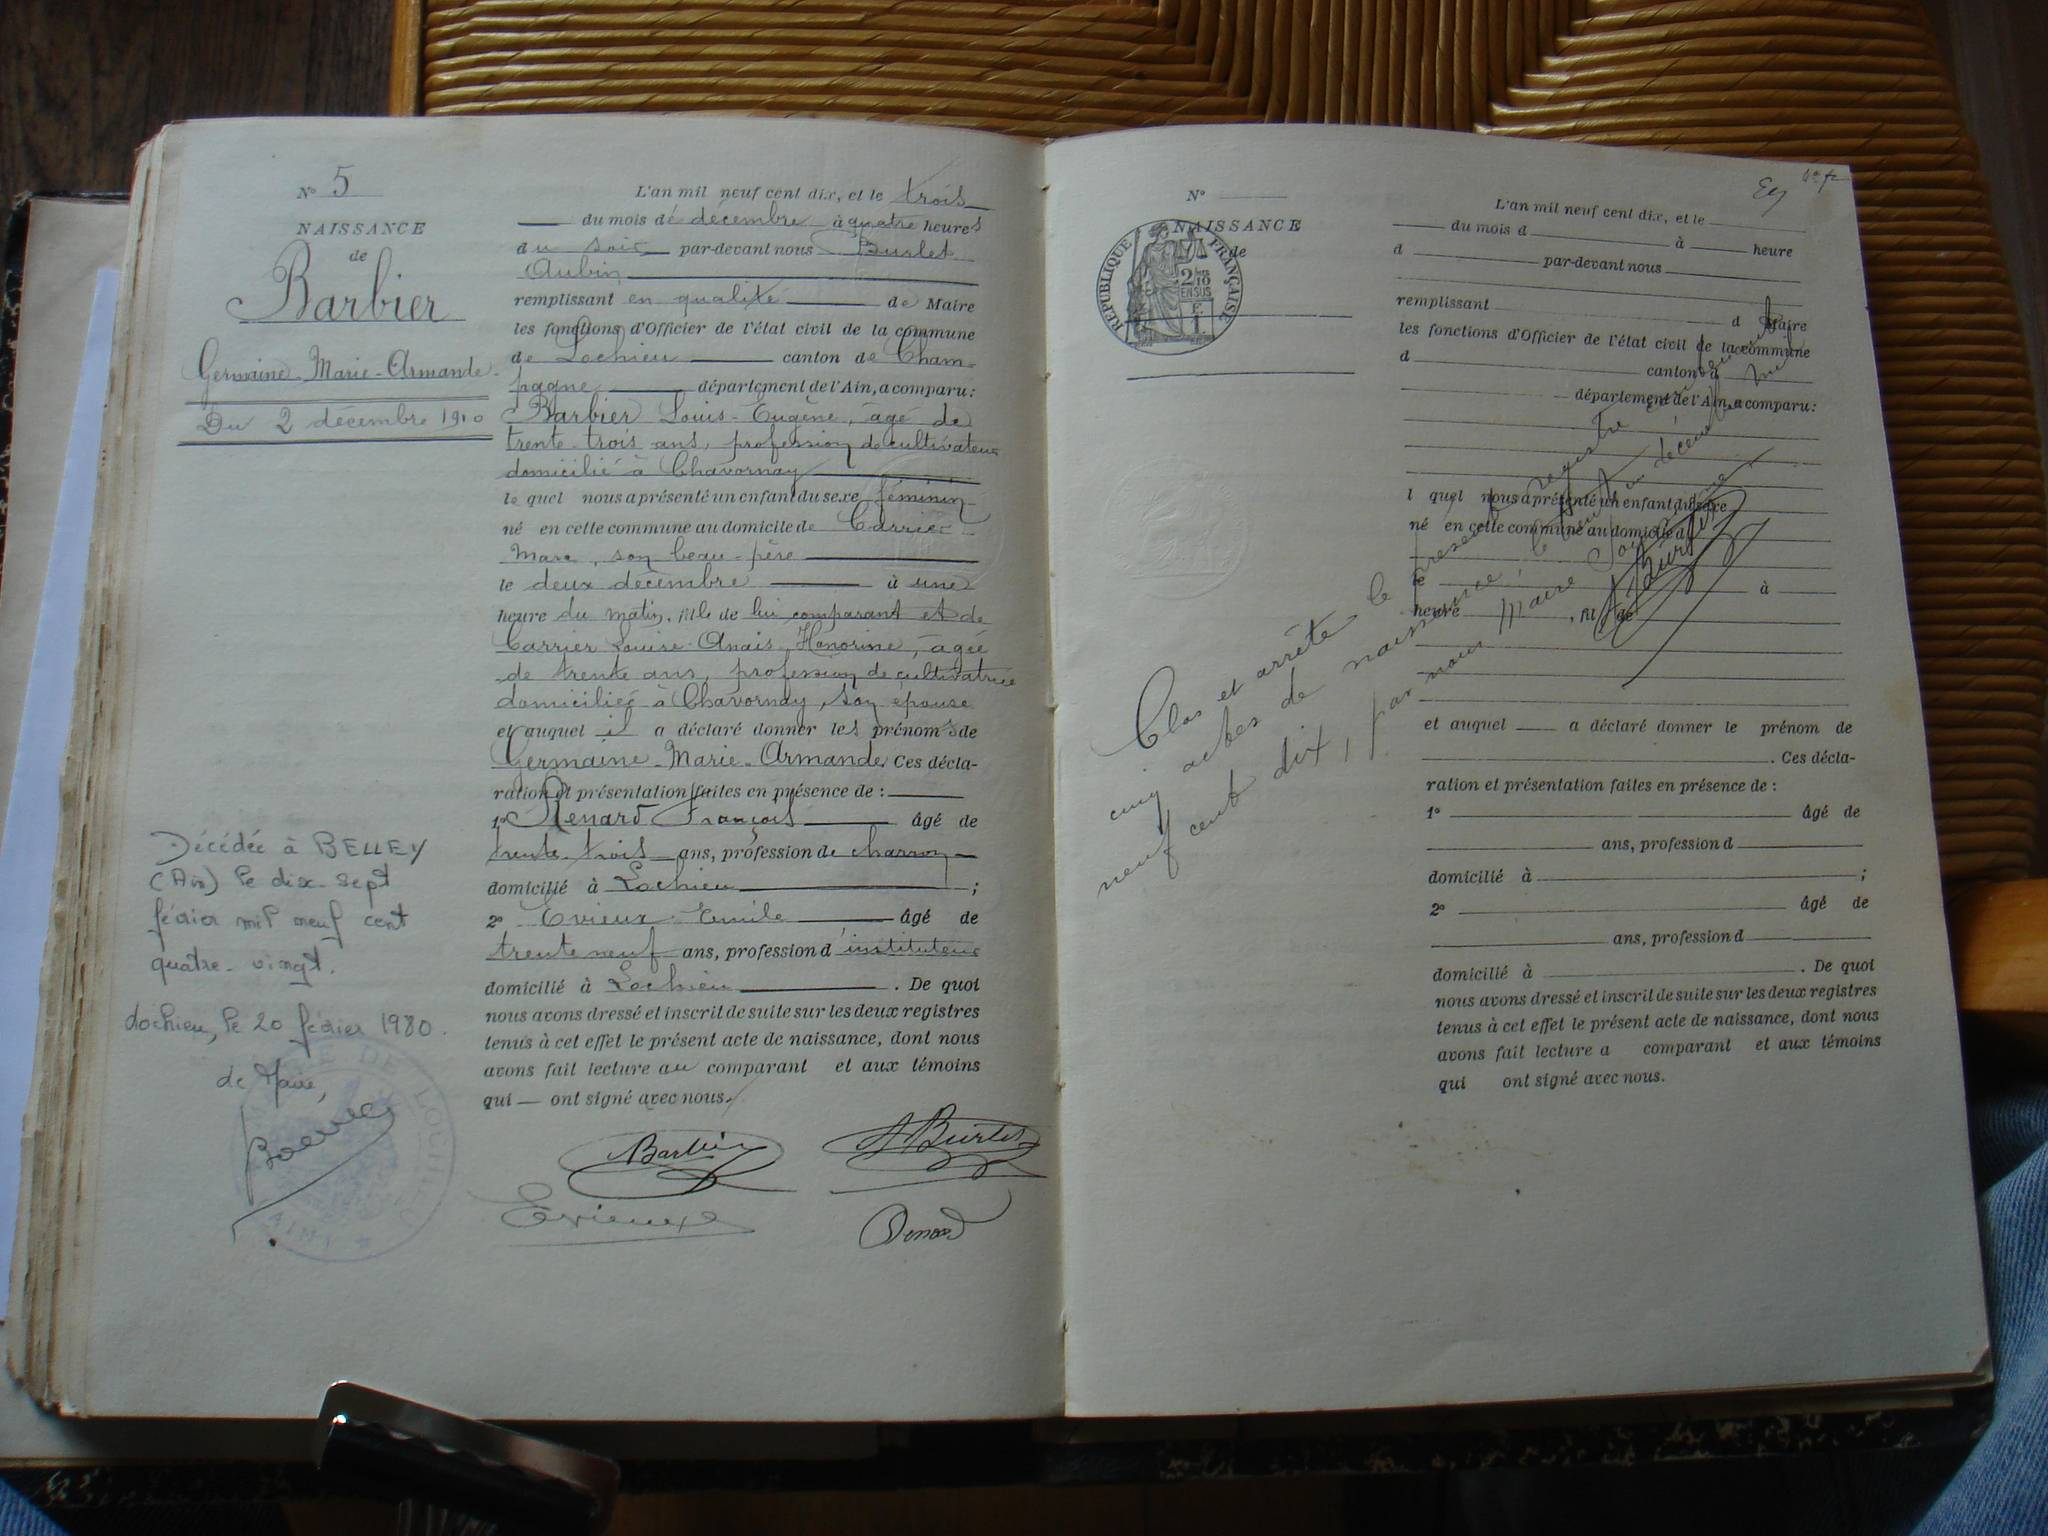 N° 5
NAISSANCE
de
Barbier
Germaine Marie-Armande
Du 2 décembre 1910
Décédée à BELLEY
(Ain) le dix-sept
février mil neuf cent
quatre-vingt.
Lochieu, le 20 février 1980.
Le Maire,
MAIRIE DE LOCHIEU
(AIN)
L'an mil neuf cent dix, et le trois
du mois de décembre à quatre heures
du soir par-devant nous Burlet
Aubin
remplissant en qualité de Maire
les fonctions d'Officier de l'état civil de la commune
de Lochieu canton de Cham-
pagne département de l'Ain, a comparu:
Barbier Louis-Eugène, âgé de
trente-trois ans, profession de cultivateur
domicilié à Chavornay
lequel nous a présenté un enfant du sexe féminin
né en cette commune au domicile de Carrier
Marc, son beau-père
le deux décembre à une
heure du matin, fille de lui comparant et de
Carrier Louise-Anais Honorine, âgée
de trente ans, profession de cultivatrice
domiciliée à Chavornay, son épouse
et auquel il a déclaré donner les prénoms de
Germaine-Marie-Armande. Ces décla-
ration et présentation faites en présence de :
1° Renard François âgé de
trente-trois ans, profession de charron
domicilié à Lochieu ;
2° Evieux Emile âgé de
trente neuf ans, profession d'instituteur
domicilié à Lochieu . De quoi
nous avons dressé et inscrit de suite sur les deux registres
tenus à cet effet le présent acte de naissance, dont nous
avons fait lecture au comparant et aux témoins
qui — ont signé avec nous.
Barbier
A Burlet
Evieux
Renard
N°
NAISSANCE
de
RÉPUBLIQUE FRANÇAISE
2/10
EN SUS
L'an mil neuf cent dix, et le
du mois d à heure
d par-devant nous
remplissant d Maire
les fonctions d'Officier de l'état civil de la commune
d canton d
département de l'Ain, a comparu:
l quel nous a présenté un enfant du sexe
né en cette commune au domicile d
le à
heure , fil de
et auquel a déclaré donner le prénom de
. Ces décla-
ration et présentation faites en présence de :
1° âgé de
ans, profession d
domicilié à ;
2° âgé de
ans, profession d
domicilié à . De quoi
nous avons dressé et inscrit de suite sur les deux registres
tenus à cet effet le présent acte de naissance, dont nous
avons fait lecture a comparant et aux témoins
qui ont signé avec nous.
Clos et arrêté le présent registre
cinq actes de naissance, le trente un décembre mil
neuf cent dix, par nous Maire
A Burlet